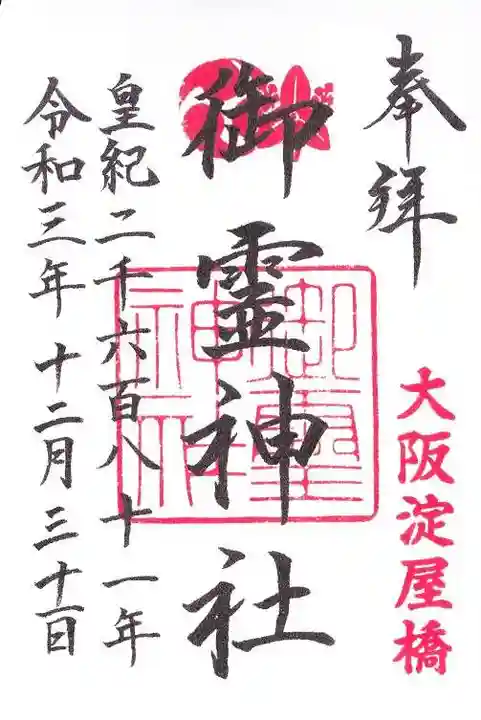 奉拝
大阪淀屋橋
御霊神社
御霊神社
皇紀二千六百八十一年
令和三年十二月三十一日